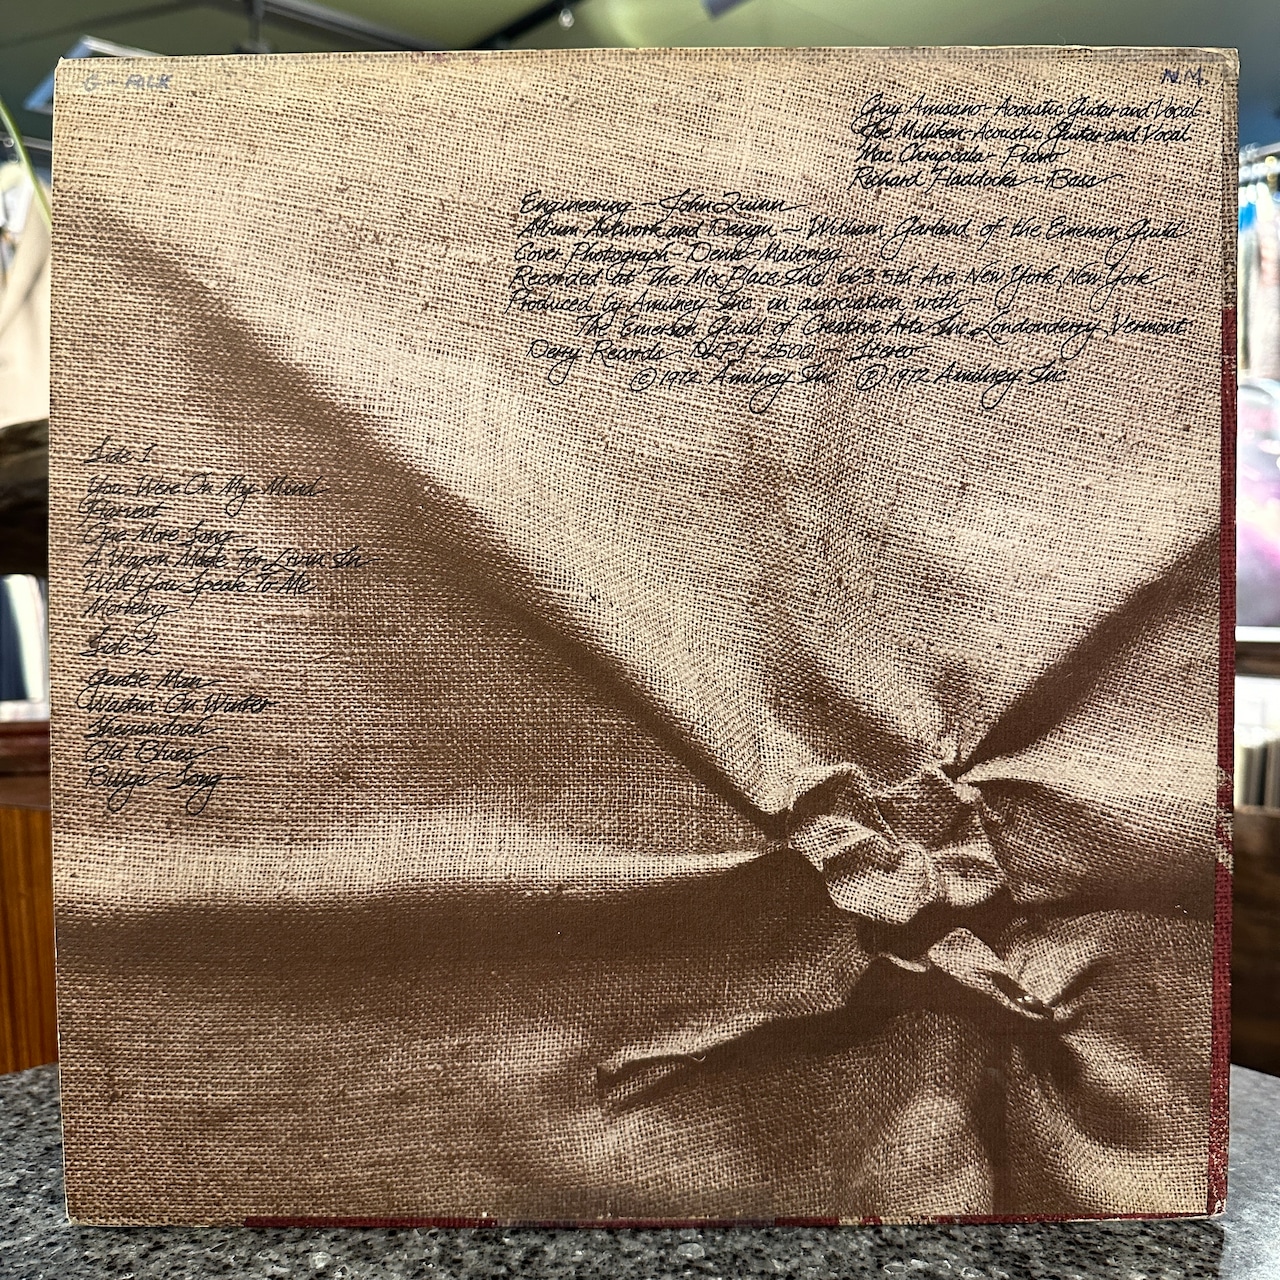 G - FOLK
N M.
Guy Amisano - Acoustic Guitar and Vocal
Joe Milliken - Acoustic Guitar and Vocal
Mac Chrupcala - Piano
Richard Haddocks - Bass
Engineering - John Quinn
Album Artwork and Design - William Garland of the Emerson Guild
Cover Photograph - Denis Maloney
Recorded at The Mix Place Inc. 663 5th Ave. New York, New York
Produced by Amilney Inc. in association with
The Emerson Guild of Creative Arts Inc. Londonderry Vermont
Derry Records DLPS-2500 - Stereo
© 1972 Amilney Inc. ℗ 1972 Amilney Inc.
Side 1
You Were On My Mind
Harvest
One More Song
A Wagon Made For Livin In
Will You Speak To Me
Morning
Side 2
Gentle Man
Waitin On Winter
Shenandoah
Old Blues
Billys Song